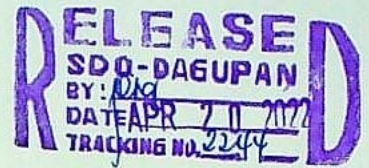 RELEASED
SDO-DAGUPAN
BY:
DATE APR 20 2022
TRACKING NO. 2244